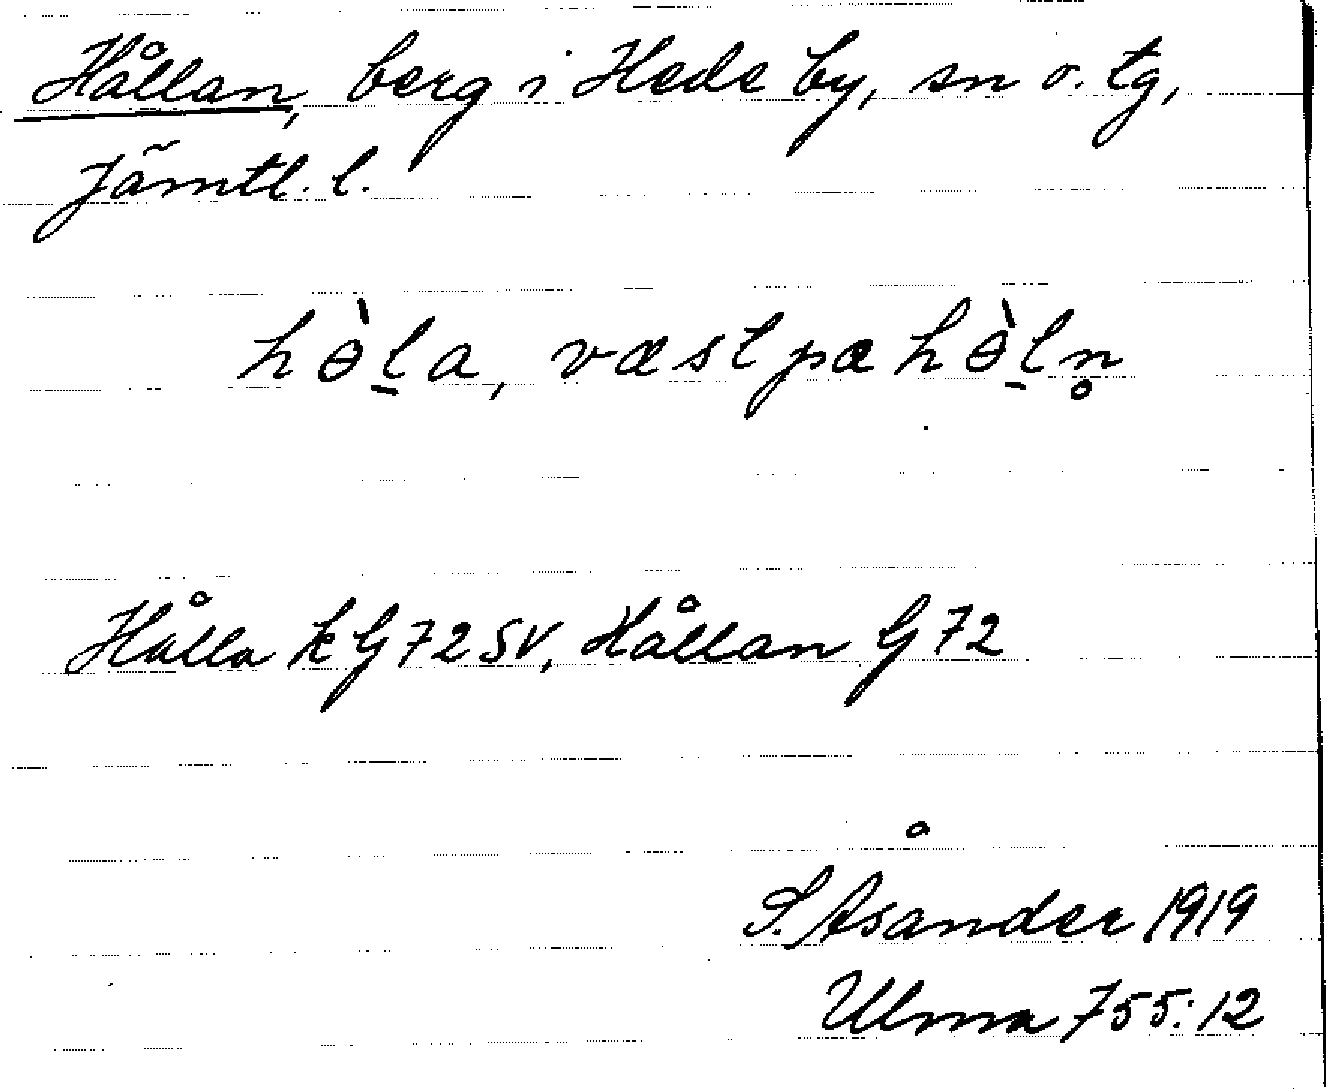 Hållan, berg i Hede by, sn o. tg,
Jämtl. l.
hɵ̀l̠a, væst pæ hɵ̀l̠n̥
Hålla k G 72 SV, Hållan G 72
S. Åsander 1919
Ulma 755:12